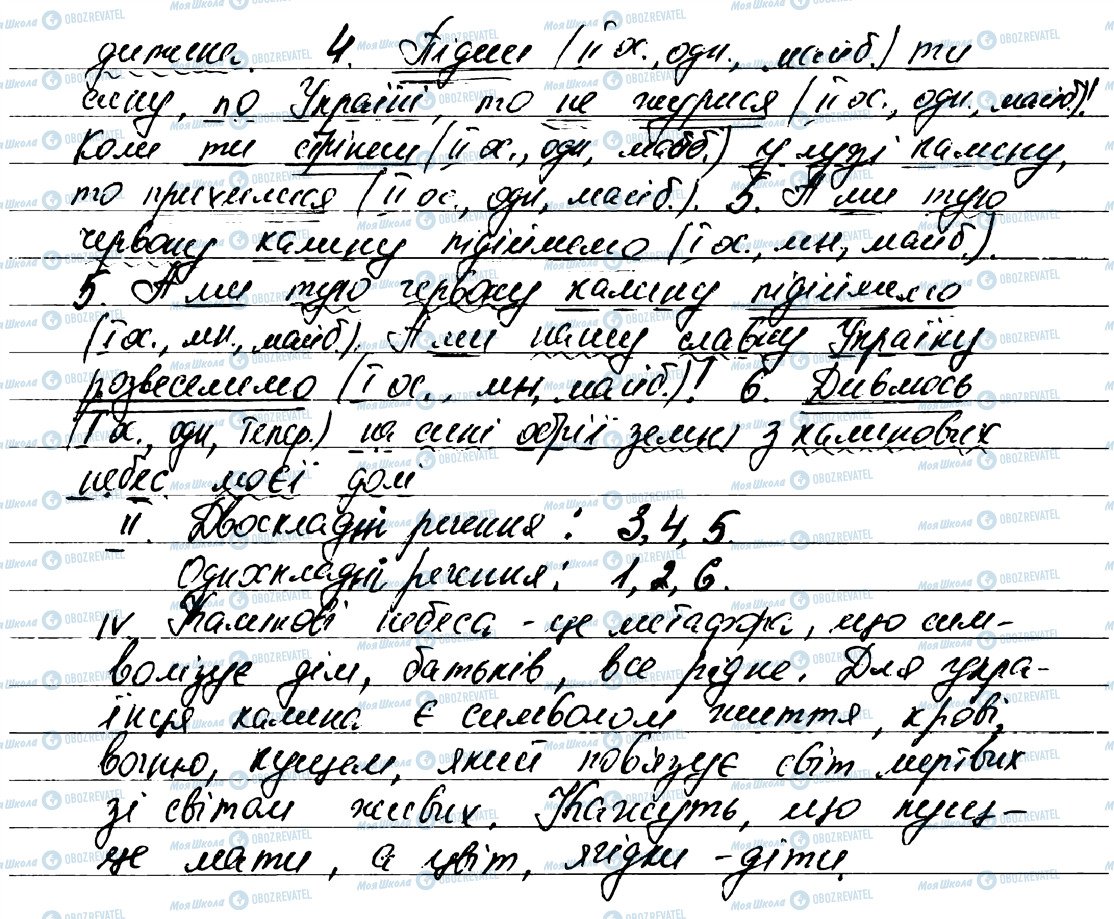 дитина. 4. Підеш (ІІ ос., одн., майб.) ти
сину, по Україні, то не журися (ІІ ос., одн., майб.)!
Коли ти стрінеш (ІІ ос., одн., майб.) у лузі калину,
то прихилися (ІІ ос., одн., майб.). 5. А ми тую
червону калину підіймемо (І ос., мн., майб.).
5. А ми тую червону калину підіймемо
(І ос., мн., майб.). А ми нашу славну Україну
розвеселимо (І ос., мн., майб.)! 6. Дивлюсь
(І ос., одн., тепер.) на сині обрії землі з калинових
небес моєї долі
ІІ. Двоскладні речення: 3, 4, 5.
Односкладні речення: 1, 2, 6.
IV Калинові небеса - це метафора, що сим-
волізує дім, батьків, все рідне. Для укра-
їнця калина є символом життя, крові,
вогню, кущем, який пов'язує світ мертвих
зі світом живих. Кажуть, що кущ -
це мати, а цвіт, ягідки - діти.